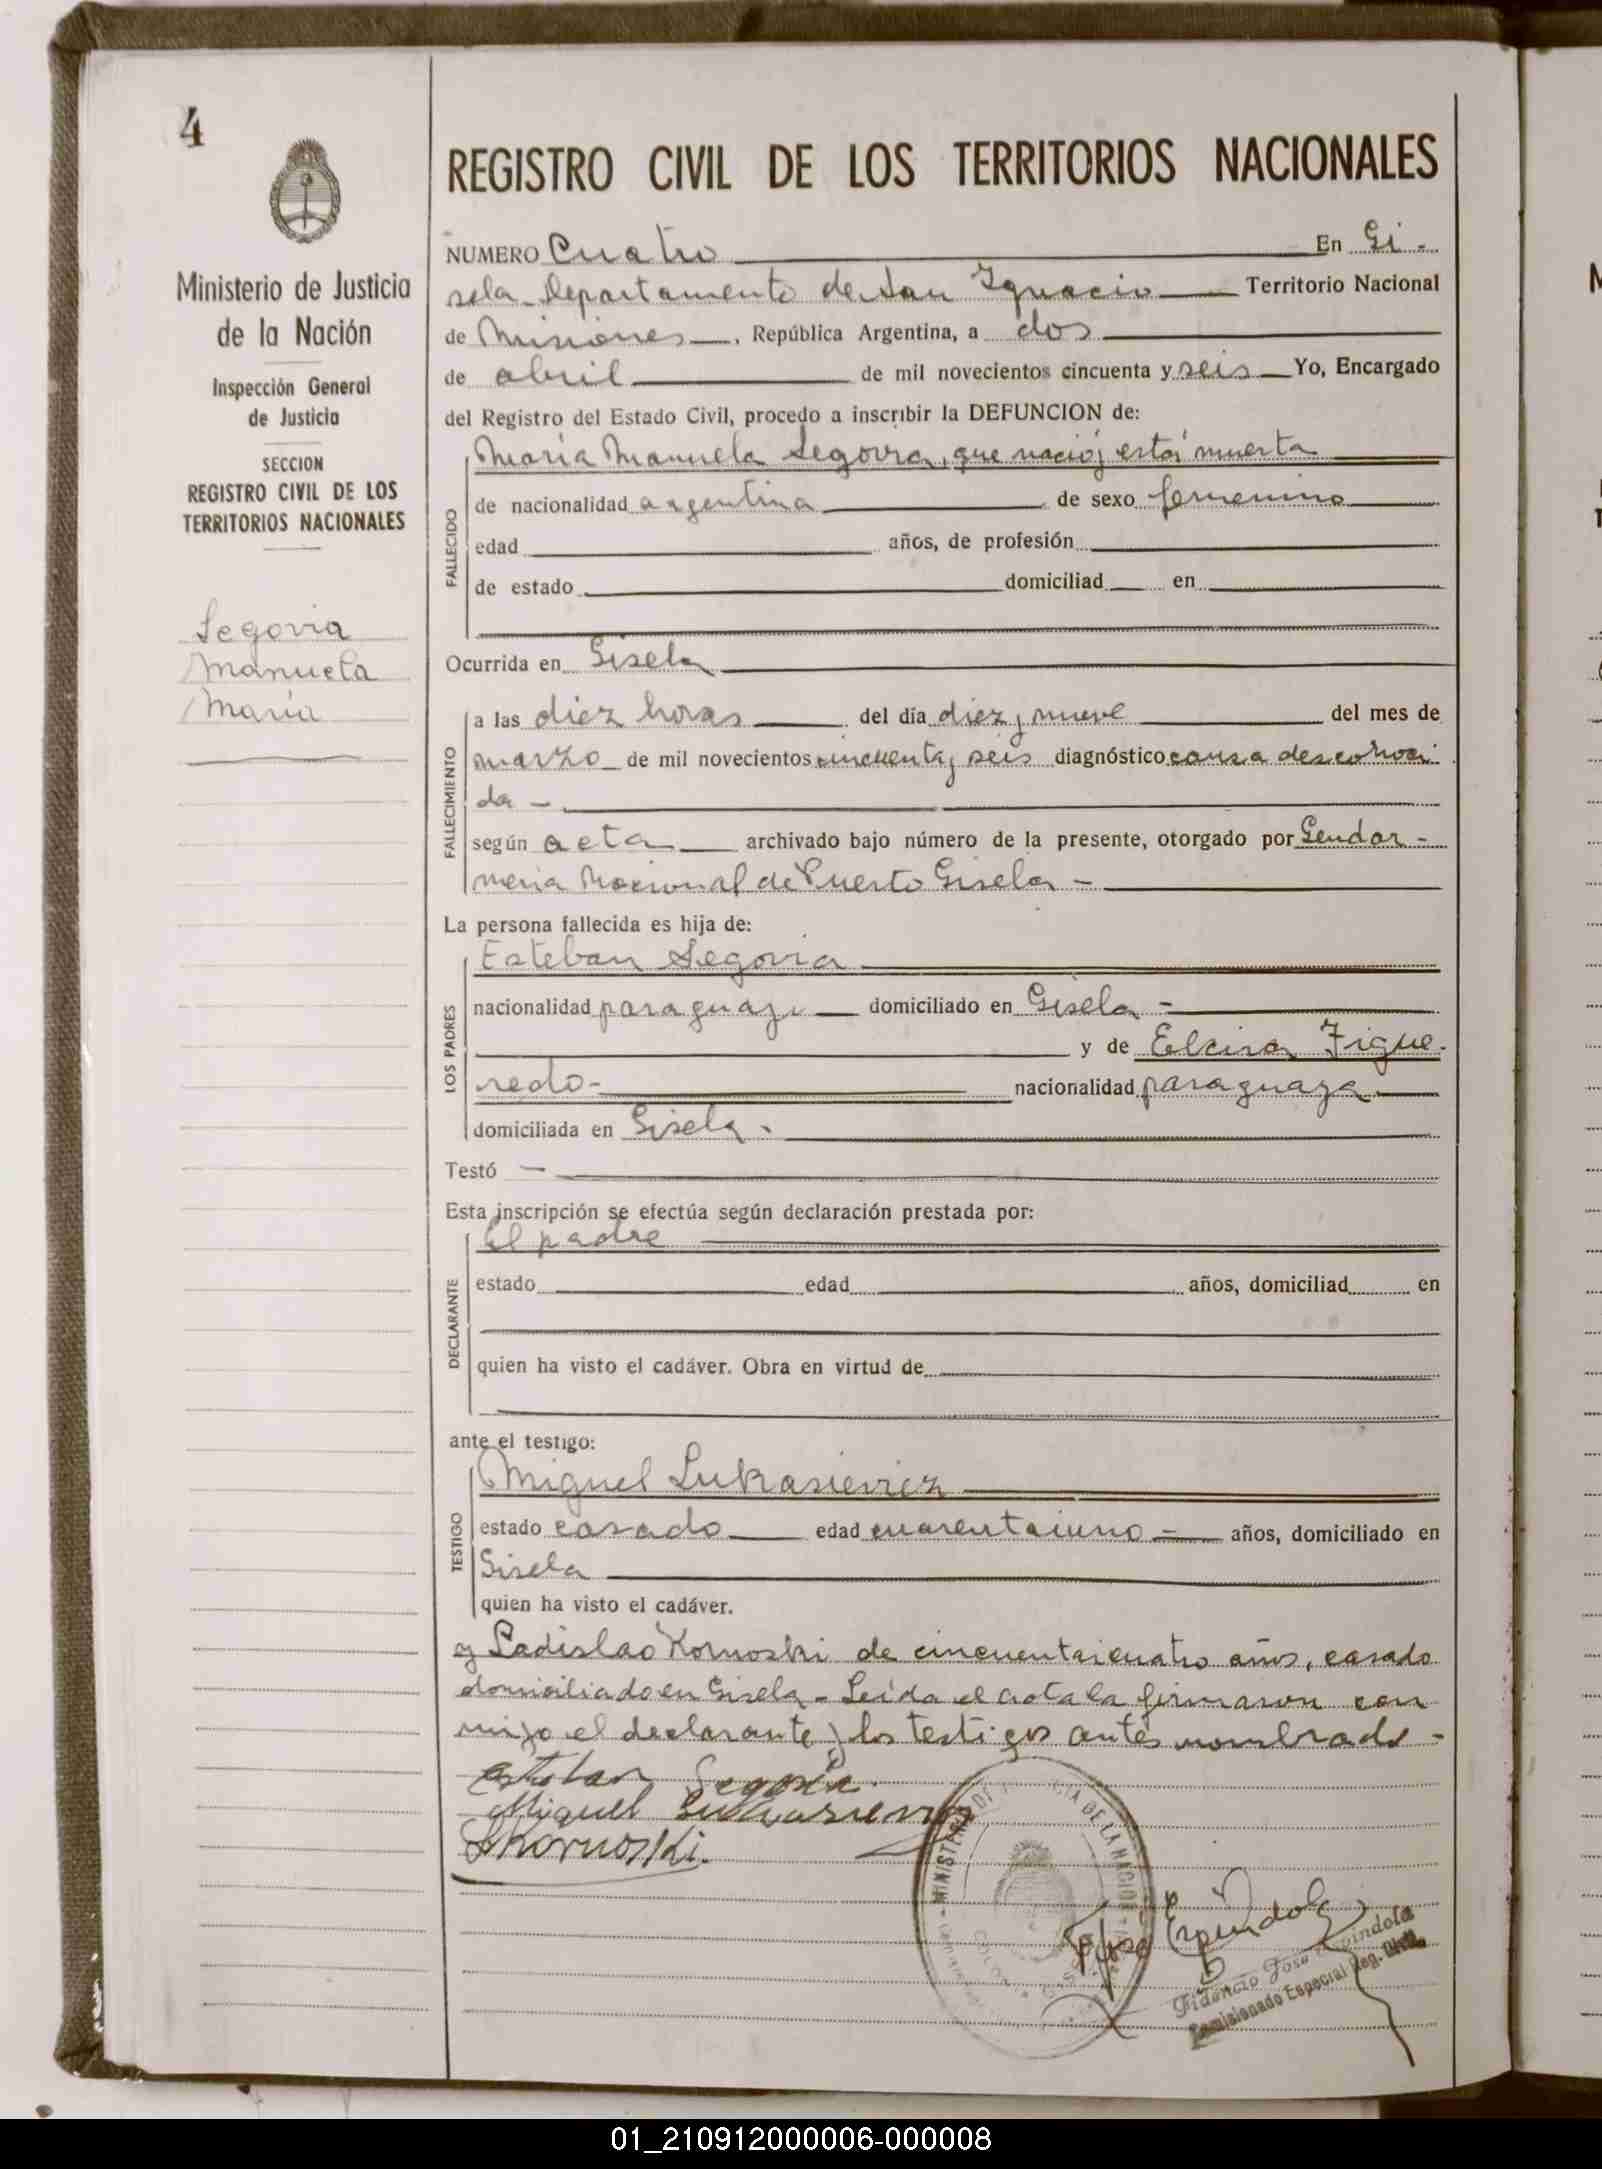 4
Ministerio de Justicia
de la Nación
Inspección General
de Justicia
SECCION
REGISTRO CIVIL DE LOS
TERRITORIOS NACIONALES
Segovia
Manuela
María
REGISTRO CIVIL DE LOS TERRITORIOS NACIONALES
NUMERO Cuatro En Gi-
sela Departamento de San Ignacio Territorio Nacional
de Misiones, República Argentina, a dos
de abril de mil novecientos cincuenta y seis Yo, Encargado
del Registro del Estado Civil, procedo a inscribir la DEFUNCION de:
FALLECIDO
María Manuela Segovia, que nació y está muerta
de nacionalidad argentina de sexo femenino
edad años, de profesión
de estado domiciliad en
Ocurrida en Gisela
FALLECIMIENTO
a las diez horas del día diez y nueve del mes de
marzo de mil novecientos cincuenta y seis diagnóstico causa desconoci
da -
según acta archivado bajo número de la presente, otorgado por Gendar-
meria Nacional de Puerto Gisela -
La persona fallecida es hija de:
LOS PADRES
Esteban Segovia
nacionalidad paraguay domiciliado en Gisela -
y de Elcira Figue-
redo- nacionalidad paraguaya
domiciliada en Gisela.
Testó —
Esta inscripción se efectúa según declaración prestada por:
DECLARANTE
El padre
estado edad años, domiciliad en
quien ha visto el cadáver. Obra en virtud de
ante el testigo:
TESTIGO
Miguel Lukasievicz
estado casado edad cuarentaiuno - años, domiciliado en
Gisela
quien ha visto el cadáver.
y Ladislao Kornoski de cincuentaicuatro años, casado
domiciliado en Gisela - Leída el acta la firmaron con
migo el declarante y los testigos antes nombrado -
Esteban Segovia
Miguel
LKornoski.
MINISTERIO DE LA NACION
Espindola
Fidencio Jose Espindola
Comisionado Especial Reg. Civil
01_210912000006-000008